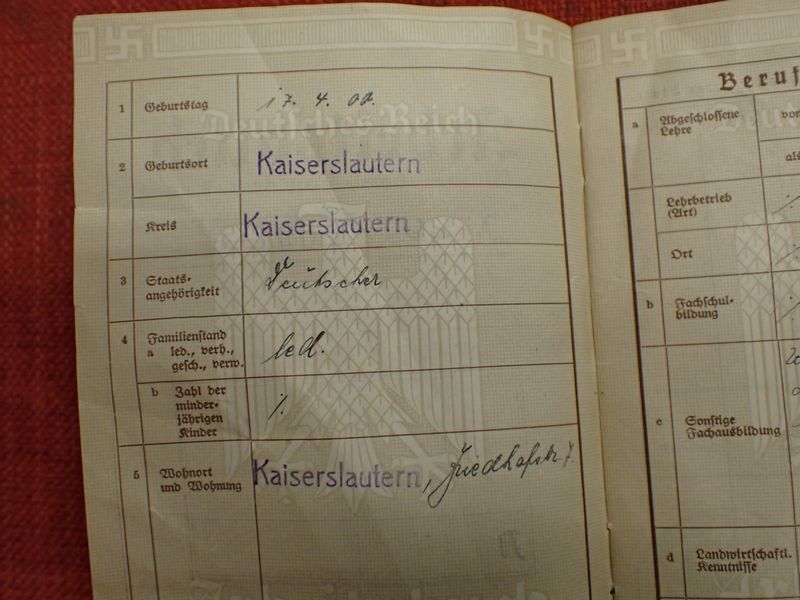 1 Geburtstag 17. 4. 00.
2 Geburtsort Kaiserslautern
Kreis Kaiserslautern
3 Staats-
angehörigkeit Deutscher
4 Familienstand
a led., verh.,
gesch., verw. led.
b Zahl der
minder-
jährigen
Kinder ./.
5 Wohnort
und Wohnung Kaiserslautern, Friedhofstr. 7
Deutsches Reich
Beruf
a Abgeschlossene
Lehre
als
Lehrbetrieb
(Art)
Ort
b Fachschul-
bildung
c Sonstige
Fachausbildung
d Landwirtschaftl.
Kenntnisse